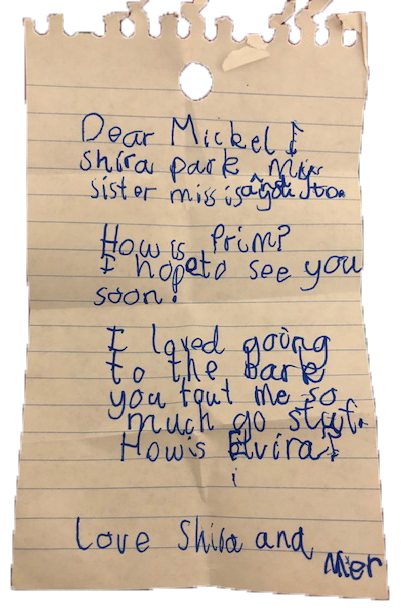 Dear Mickel I
shira park My
sister miss is and you too.
How is Prim?
I hope to see you
soon!
I loved going
to the park
you tout me so
much go stuf.
How is Elvira?
Love Shira and
Mier